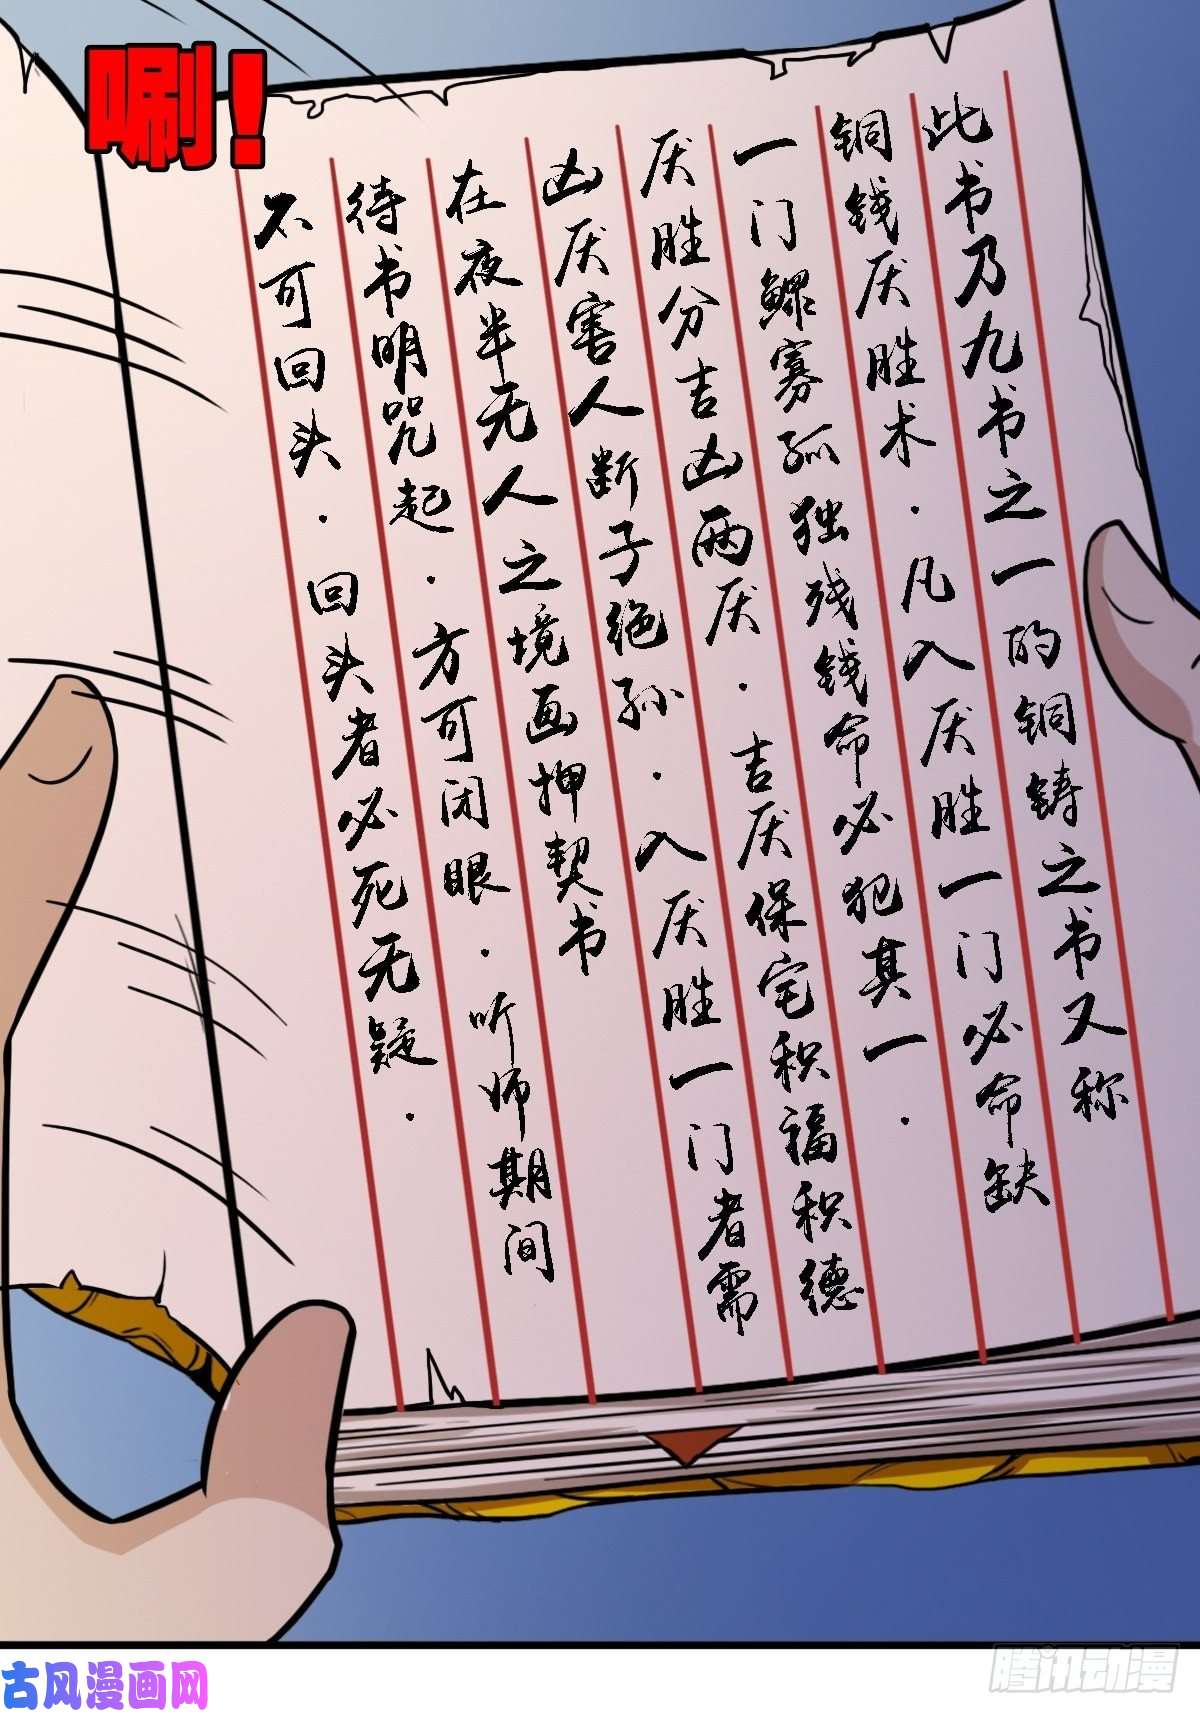 唰！
此书乃九书之一的铜铸之书又称
铜钱厌胜术．凡入厌胜一门必命缺
一门鳏寡孤独残钱命必犯其一．
厌胜分吉凶两厌．吉厌保宅积福积德
凶厌害人断子绝孙．入厌胜一门者需
在夜半无人之境画押契书
待书明咒起．方可闭眼．听师期间
不可回头．回头者必死无疑．
古风漫画网
腾讯动漫